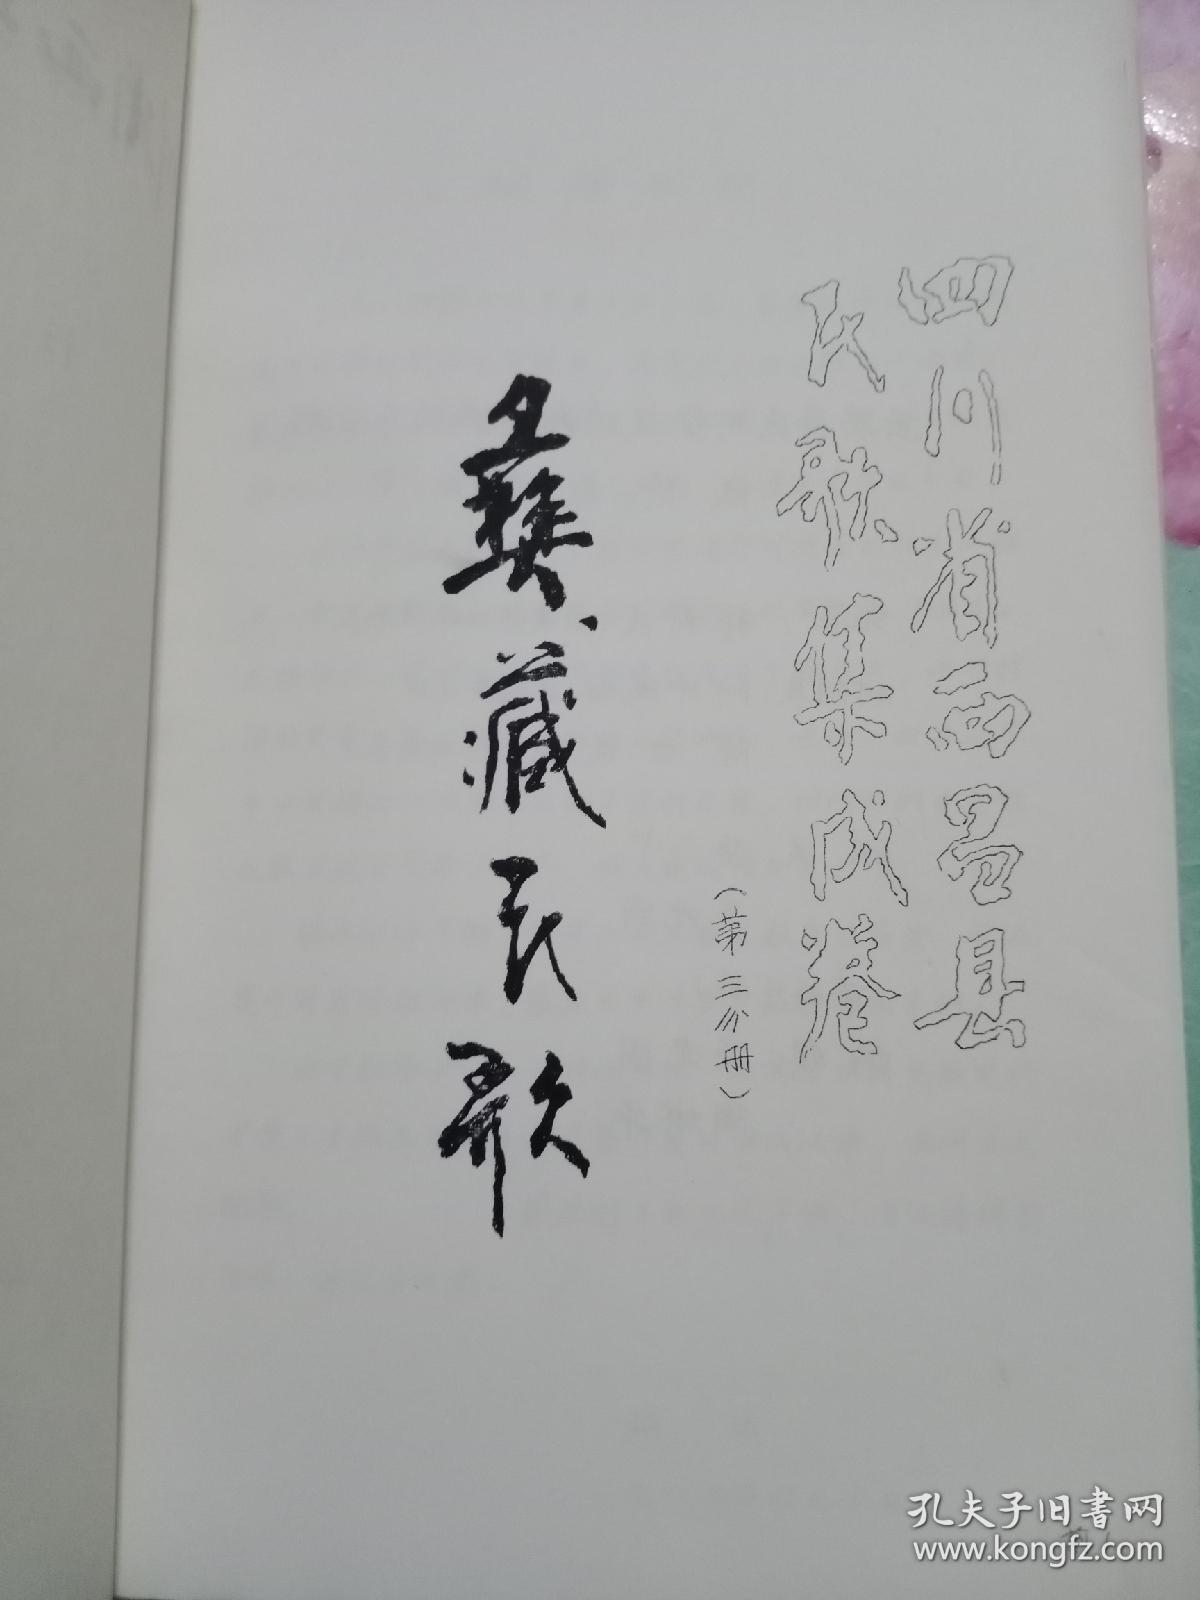 四川省西昌县
民歌集成卷
（第三分册）
彝、藏民歌
孔夫子旧书网
www.kongfz.com